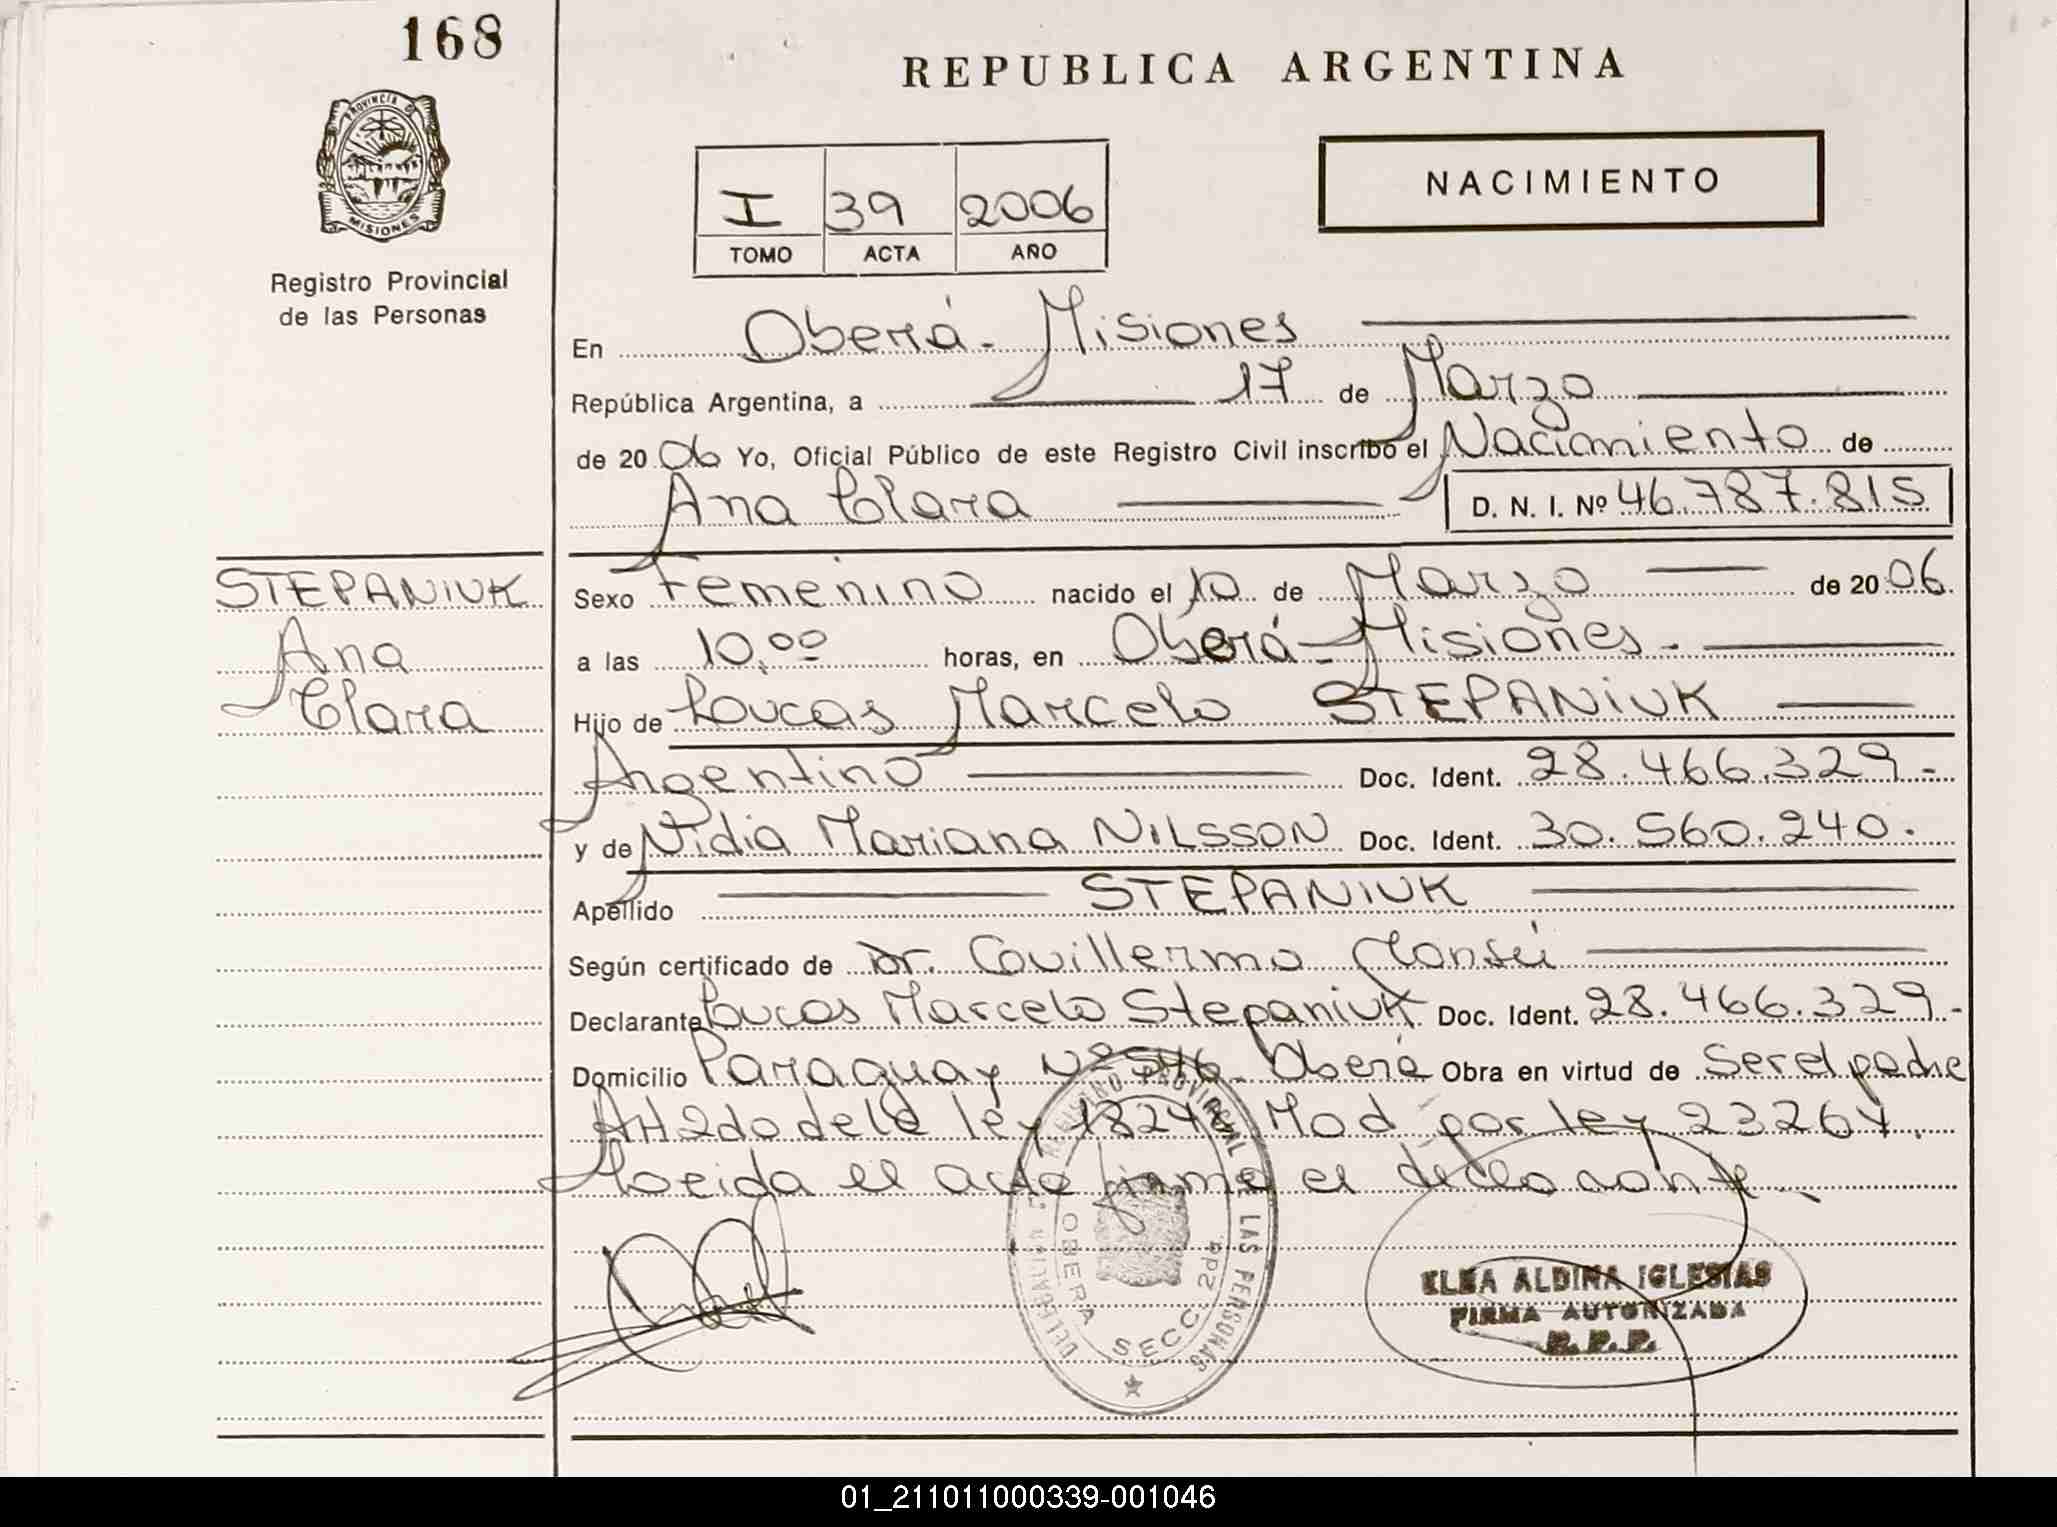 168
REPUBLICA ARGENTINA
PROVINCIA D
MISIONES
NACIMIENTO
I 39 2006
TOMO ACTA AÑO
Registro Provincial
de las Personas
En Oberá - Misiones
República Argentina, a 17 de Marzo
de 2006 Yo, Oficial Público de este Registro Civil inscribo el Nacimiento de
Ana Clara D. N. I. Nº 46.787.815
STEPANIUK
Ana
Clara
Sexo Femenino nacido el 10 de Marzo de 2006.
a las 10,00 horas, en Oberá - Misiones -
Hijo de Lucas Marcelo STEPANIUK
Argentino Doc. Ident. 28.466.329-
y de Nidia Mariana NILSSON Doc. Ident. 30.560.240.
Apellido STEPANIUK
Según certificado de Dr. Guillermo
Declarante Lucas Marcelo Stepaniuk Doc. Ident. 28.466.329-
Domicilio Paraguay Nº 546 - Oberá Obra en virtud de Ser el padre
Art 2do de la ley 18248 Mod por ley 23264.
Leida el acta firma el declarante
REGISTRO PROVINCIAL DE LAS PERSONAS
OBERA SECC. 2da
ELBA ALDINA IGLESIAS
FIRMA AUTORIZADA
R.P.P.
01_211011000339-001046